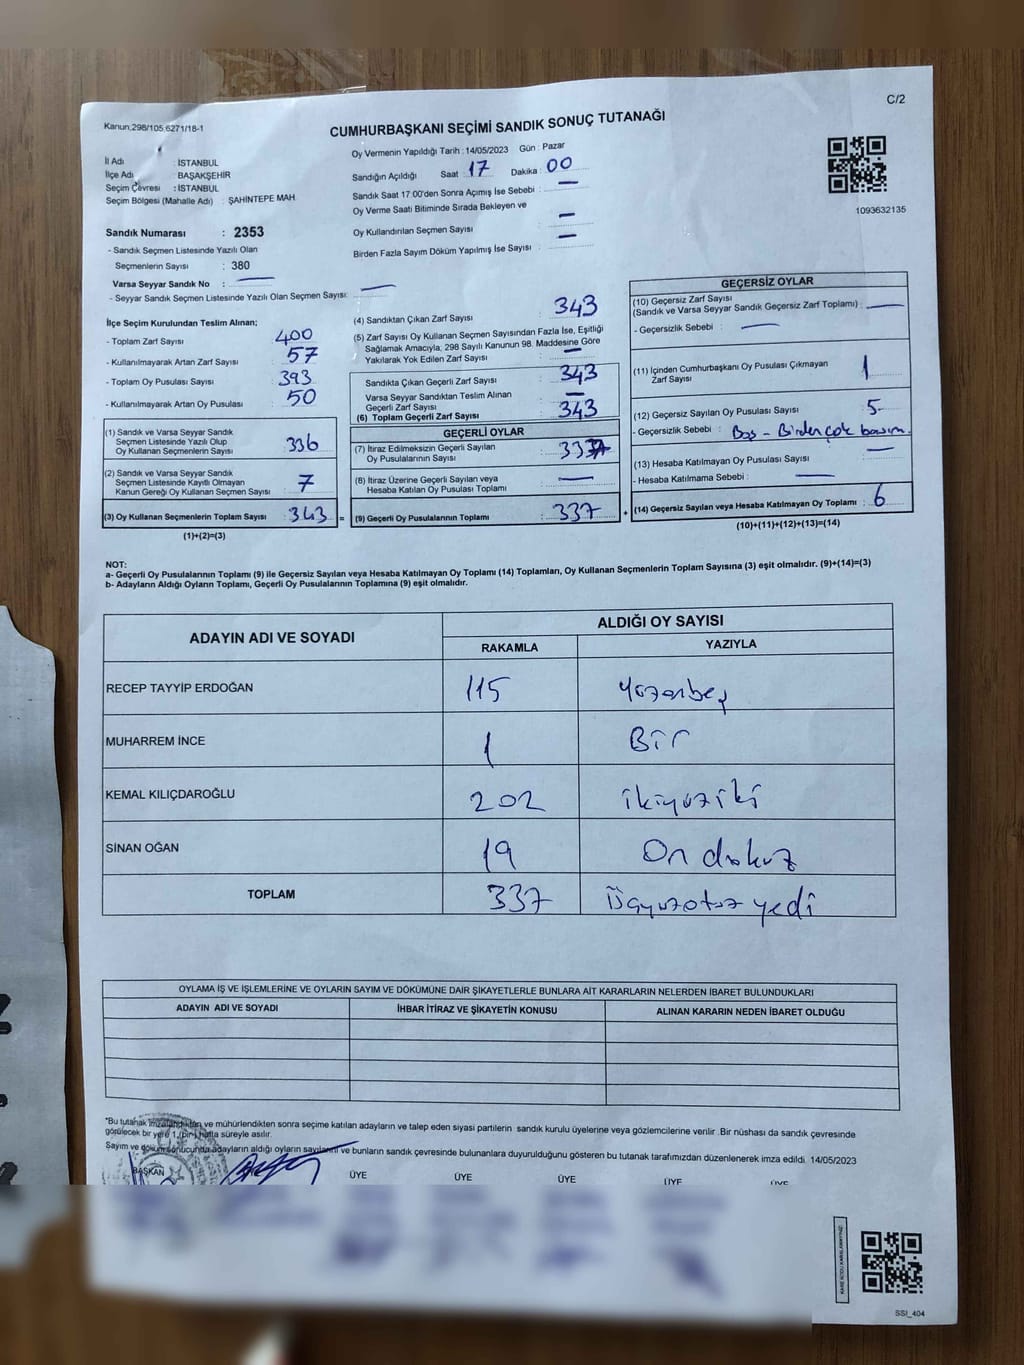 C/2
Kanun;298/105;6271/18-1
CUMHURBAŞKANI SEÇİMİ SANDIK SONUÇ TUTANAĞI
İl Adı : İSTANBUL
İlçe Adı : BAŞAKŞEHİR
Seçim Çevresi : İSTANBUL
Seçim Bölgesi (Mahalle Adı) : ŞAHİNTEPE MAH.
Sandık Numarası : 2353
- Sandık Seçmen Listesinde Yazılı Olan
Seçmenlerin Sayısı : 380
Varsa Seyyar Sandık No : —
- Seyyar Sandık Seçmen Listesinde Yazılı Olan Seçmen Sayısı: —
Oy Vermenin Yapıldığı Tarih : 14/05/2023 Gün : Pazar
Sandığın Açıldığı Saat : 17 Dakika : 00
Sandık Saat 17:00'den Sonra Açımış İse Sebebi : —
Oy Verme Saati Bitiminde Sırada Bekleyen ve
Oy Kullandırılan Seçmen Sayısı : —
Birden Fazla Sayım Döküm Yapılmış İse Sayısı : —
1093632135
İlçe Seçim Kurulundan Teslim Alınan;
- Toplam Zarf Sayısı : 400
- Kullanılmayarak Artan Zarf Sayısı : 57
- Toplam Oy Pusulası Sayısı : 393
- Kullanılmayarak Artan Oy Pusulası : 50
(1) Sandık ve Varsa Seyyar Sandık
Seçmen Listesinde Yazılı Olup
Oy Kullanan Seçmenlerin Sayısı : 336
(2) Sandık ve Varsa Seyyar Sandık
Seçmen Listesinde Kayıtlı Olmayan
Kanun Gereği Oy Kullanan Seçmen Sayısı : 7
(3) Oy Kullanan Seçmenlerin Toplam Sayısı : 343 =
(1)+(2)=(3)
(4) Sandıktan Çıkan Zarf Sayısı : 343
(5) Zarf Sayısı Oy Kullanan Seçmen Sayısından Fazla İse, Eşitliği
Sağlamak Amacıyla; 298 Sayılı Kanunun 98. Maddesine Göre
Yakılarak Yok Edilen Zarf Sayısı : —
Sandıkta Çıkan Geçerli Zarf Sayısı : 343
Varsa Seyyar Sandıktan Teslim Alınan
Geçerli Zarf Sayısı : —
(6) Toplam Geçerli Zarf Sayısı : 343
GEÇERLİ OYLAR
(7) İtiraz Edilmeksizin Geçerli Sayılan
Oy Pusulalarının Sayısı : 337
(8) İtiraz Üzerine Geçerli Sayılan veya
Hesaba Katılan Oy Pusulası Toplamı : —
(9) Geçerli Oy Pusulalarının Toplamı : 337 +
GEÇERSİZ OYLAR
(10) Geçersiz Zarf Sayısı
(Sandık ve Varsa Seyyar Sandık Geçersiz Zarf Toplamı) : —
- Geçersizlik Sebebi : —
(11) İçinden Cumhurbaşkanı Oy Pusulası Çıkmayan
Zarf Sayısı : 1
(12) Geçersiz Sayılan Oy Pusulası Sayısı : 5
- Geçersizlik Sebebi : Boş - Birden çok basım.
(13) Hesaba Katılmayan Oy Pusulası Sayısı : —
- Hesaba Katılmama Sebebi : —
(14) Geçersiz Sayılan veya Hesaba Katılmayan Oy Toplamı : 6
(10)+(11)+(12)+(13)=(14)
NOT:
a- Geçerli Oy Pusulalarının Toplamı (9) ile Geçersiz Sayılan veya Hesaba Katılmayan Oy Toplamı (14) Toplamları, Oy Kullanan Seçmenlerin Toplam Sayısına (3) eşit olmalıdır. (9)+(14)=(3)
b- Adayların Aldığı Oyların Toplamı, Geçerli Oy Pusulalarının Toplamına (9) eşit olmalıdır.
ADAYIN ADI VE SOYADI
ALDIĞI OY SAYISI
RAKAMLA YAZIYLA
RECEP TAYYİP ERDOĞAN 115 Yüzonbeş
MUHARREM İNCE 1 Bir
KEMAL KILIÇDAROĞLU 202 ikiyüziki
SİNAN OĞAN 19 On dokuz
TOPLAM 337 Üçyüzotuz yedi
OYLAMA İŞ VE İŞLEMLERİNE VE OYLARIN SAYIM VE DÖKÜMÜNE DAİR ŞİKAYETLERLE BUNLARA AİT KARARLARIN NELERDEN İBARET BULUNDUKLARI
ADAYIN ADI VE SOYADI İHBAR İTİRAZ VE ŞİKAYETİN KONUSU ALINAN KARARIN NEDEN İBARET OLDUĞU
*Bu tutanak imzalandıktan ve mühürlendikten sonra seçime katılan adayların ve talep eden siyasi partilerin sandık kurulu üyelerine veya gözlemcilerine verilir. Bir nüshası da sandık çevresinde
görülecek bir yere 1 (bir) hafta süreyle asılır.
Sayım ve döküm sonucunda adayların aldığı oyların sayılarını ve bunların sandık çevresinde bulunanlara duyurulduğunu gösteren bu tutanak tarafımızdan düzenlenerek imza edildi. 14/05/2023
BAŞKAN ÜYE ÜYE ÜYE ÜYE ÜYE
SSI_404